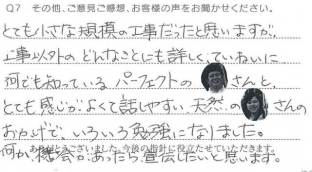 Q7 その他、ご意見ご感想、お客様の声をお聞かせください。
とても小さな規模の工事だったと思いますが、
工事以外のどんなことにも詳しく、ていねいに
何でも知っているパーフェクトの さんと、
とても感じがよくて話しやすい天然の さんの
おかげで、いろいろ勉強になりました。
ありがとうございました。今後の指針に役立たせていただきます。
何か、機会があったら、宣伝したいと思います。